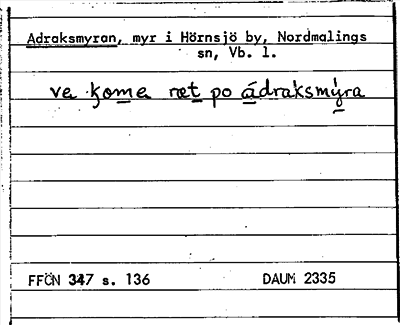 Adraksmyran, myr i Hörnsjö by, Nordmalings
sn, Vb. l.
va kome ræt po ádraksmýra
FFÖN 347 s. 136 DAUM 2335